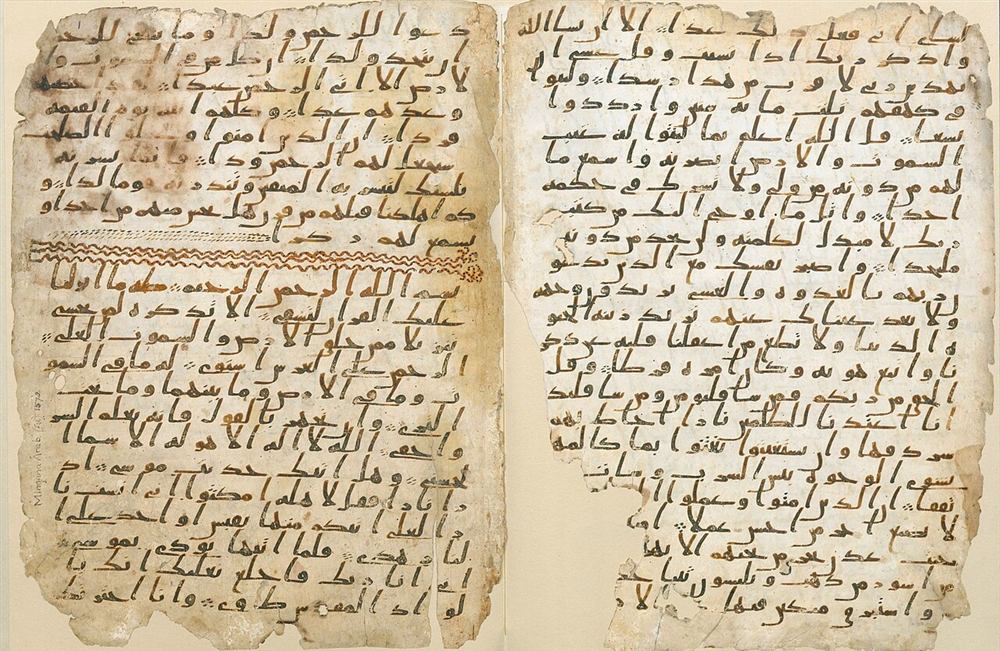 لشاى انى فعل ذلك غدا الا ان يشا الله
واذكر ربك اذا نسيت وقل عسى ا
ن يهدين ربى لاقرب من هذا رشدا ولبثوا
فى كهفهم ثلث مايه سنين وازددوا
تسعا قل الله اعلم بما لبثوا له غيب
السموت والارض ابصر به واسمع ما
لهم من دونه من ولى ولا يشرك فى حكمه
احدا واتل ما اوحى اليك من كتب
ربك لا مبدل لكلمته ولن تجد من دونه
ملتحدا واصبر نفسك مع الذين يدعو
ن ربهم بالغدوه والعشى يريدون وجهه
ولا تعد عيناك عنهم تريد زينه الحيو
ه الدنيا ولا تطع من اغفلنا قلبه عن ذكر
نا واتبع هويه وكان امره فرطا وقل
الحق من ربكم فمن شا فليومن ومن شا فليكفر
انا اعتدنا للظلمين نارا احاط بهم
سردقها وان يستغيثوا يغثوا بما كالمهل
يشوى الوجوه بئس الشراب وسات
مرتفقا ان الذين امنوا وعملوا ا
لا نضيع اجر من احسن عملا او
جنت عدن تجرى من تحتهم الانها
من اسور من ذهب ويلبسون ثيابا
واستبرق متكين فيها الا
دعوا للرحمن ولدا وما ينبغى للرحمن
ان يتخذ ولدا ان كل من فى السموت وا
لارض الا اتى الرحمن عبدا لقد احصيهم
وعدهم عدا وكلهم اتيه يوم القيمه
فردا ان الذين امنوا وعملوا الصلحت
سيجعل لهم الرحمن ودا فانما يسرنه
بلسنك لتبشر به المتقين وتنذر به قوما لدا و
كم اهلكنا قبلهم من قرن هل تحس منهم من احد او
تسمع لهم ركزا
بسم الله الرحمن الرحيم طه ما انزلنا
عليك القران لتشقى الا تذكره لمن يخشى
تنزيلا ممن خلق الارض والسموت العلى
الرحمن على العرش استوى له ما فى السمو
ت وما فى الارض وما بينهما وما تحت
الثرى وان تجهر بالقول فانه يعلم السر
واخفى الله لا اله الا هو له الاسما ا
لحسنى وهل اتيك حديث موسى اذ
را نارا فقال لاهله امكثوا انى انست نا
را لعلى اتيكم منها بقبس او اجد على ا
لنار هدى فلما اتيها نودى يموسى
انى انا ربك فاخلع نعليك انك با
لواد المقدس طوى وانا اخترتك
Mingana Arab. Isl. 1572